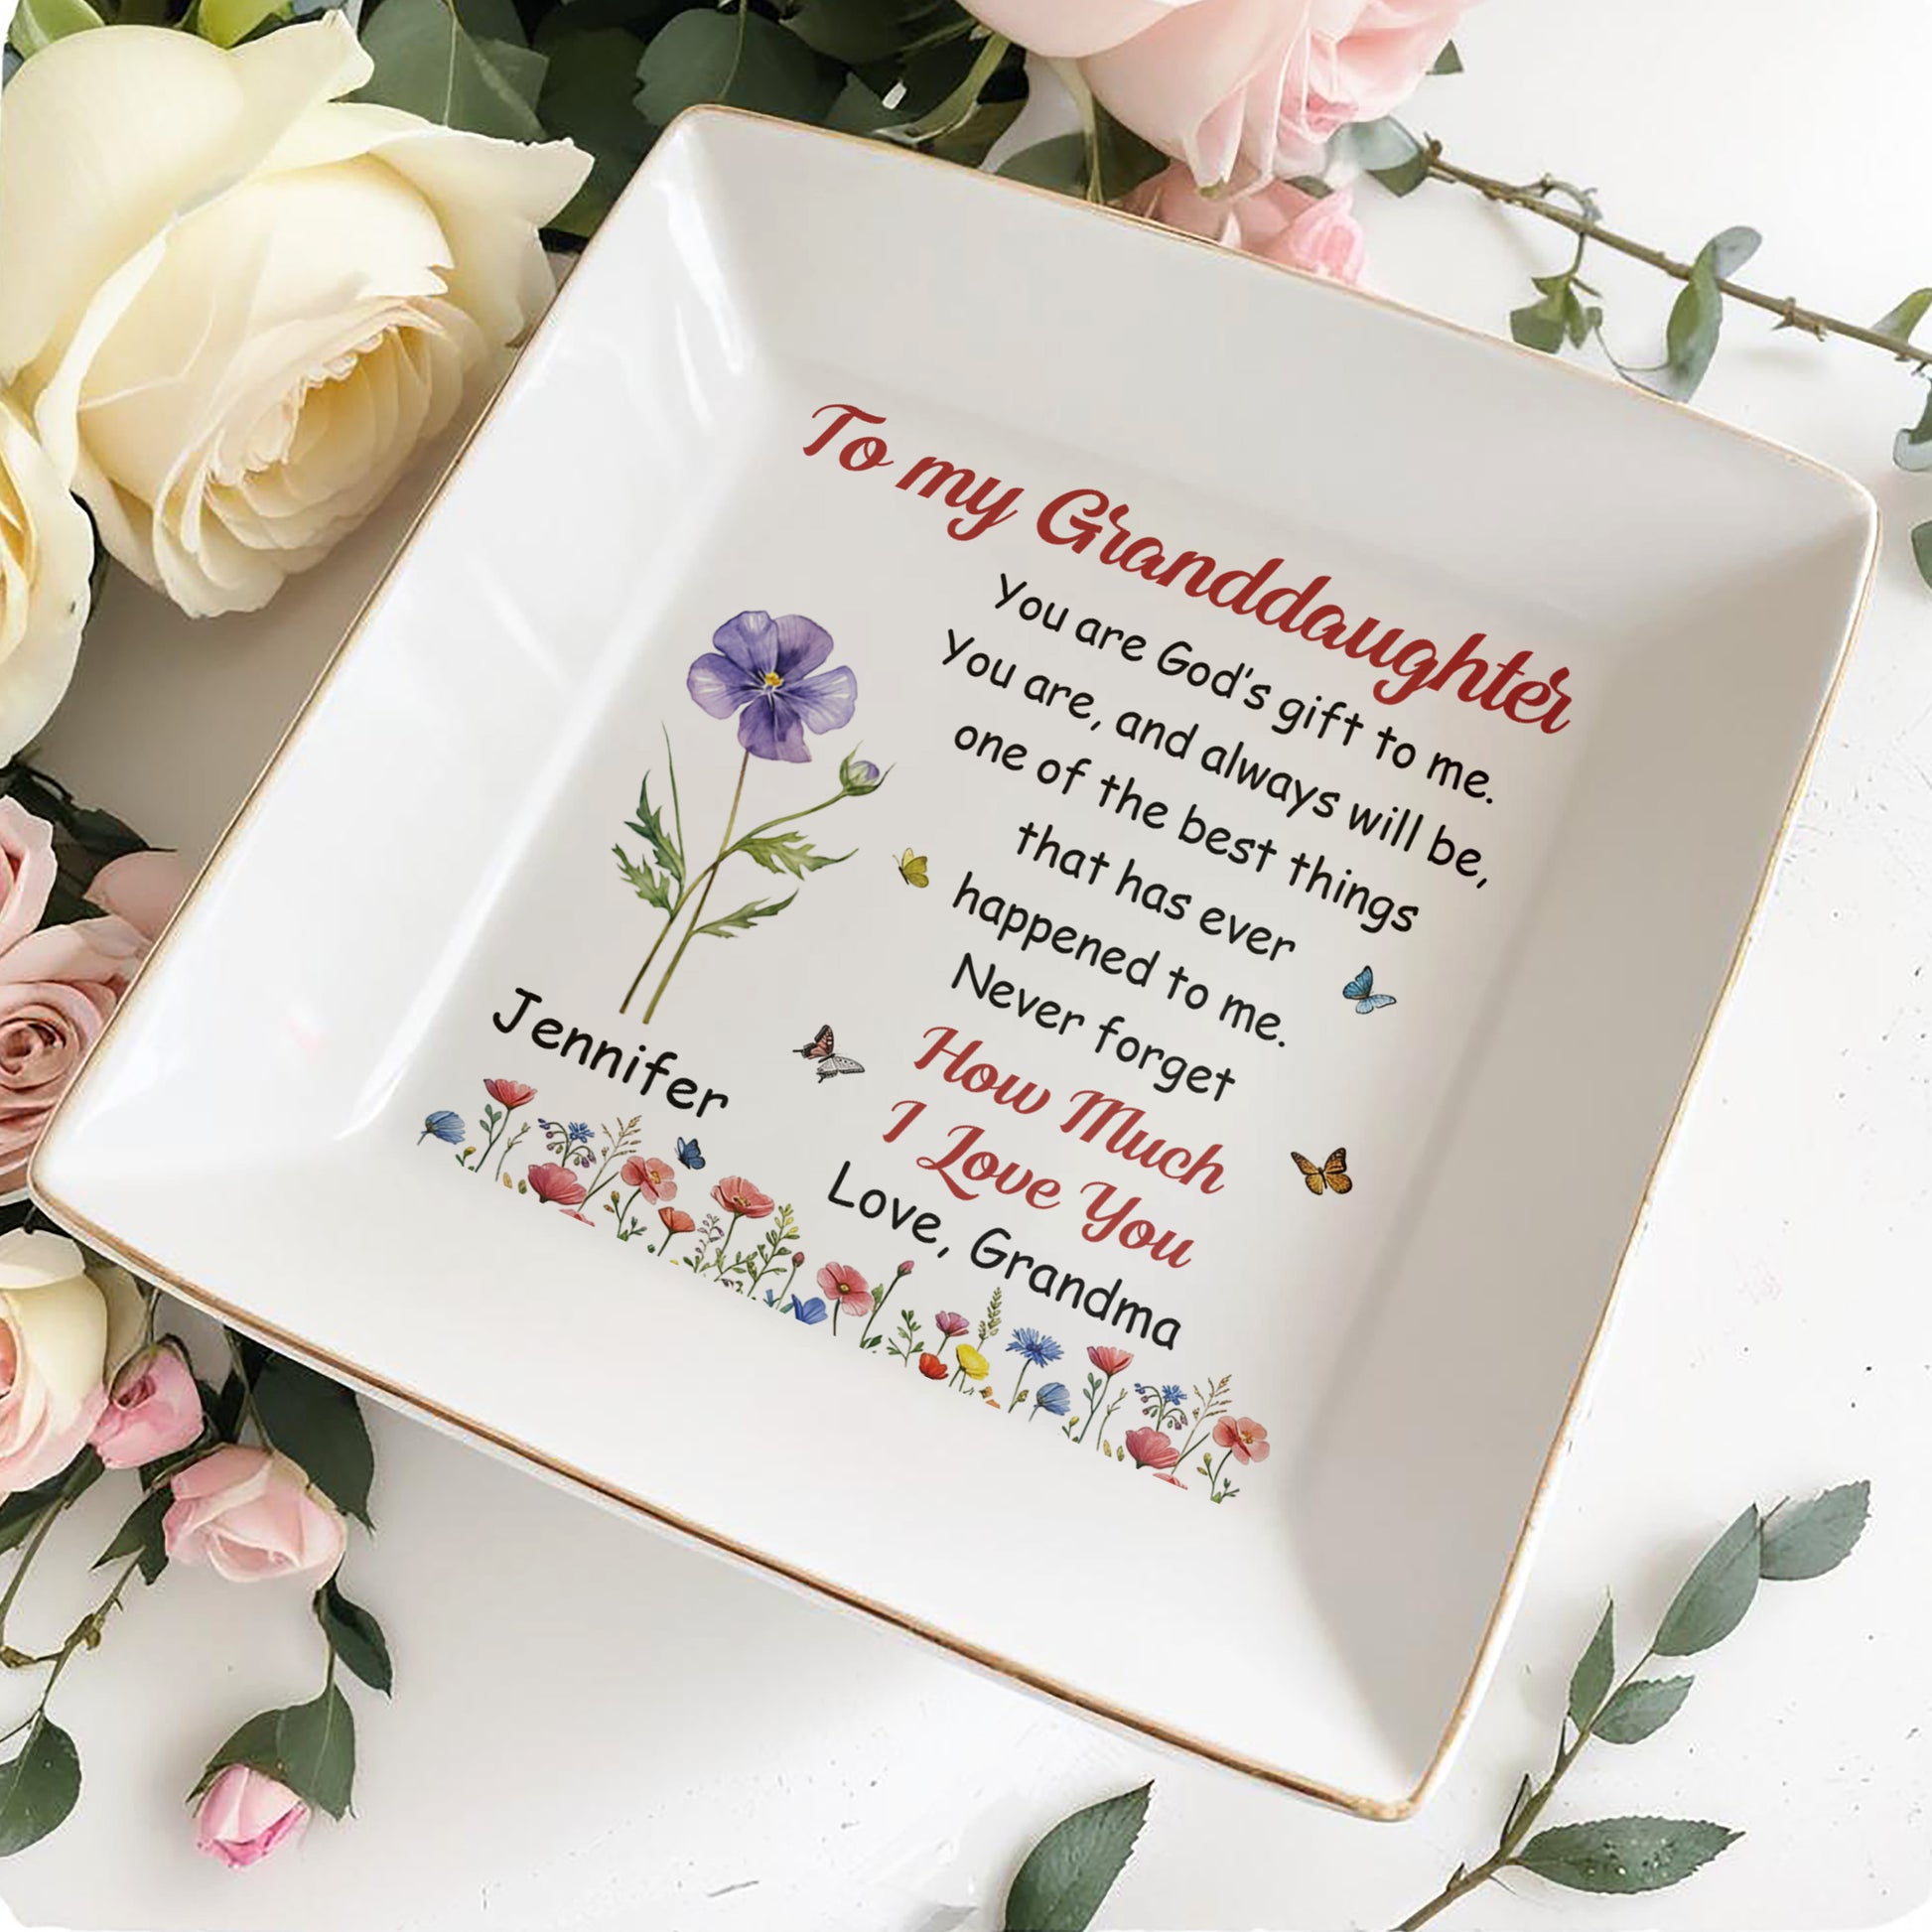 To my Granddaughter
You are God's gift to me.
You are, and always will be,
one of the best things
that has ever
happened to me.
Never forget
How Much
I Love You
Love, Grandma
Jennifer